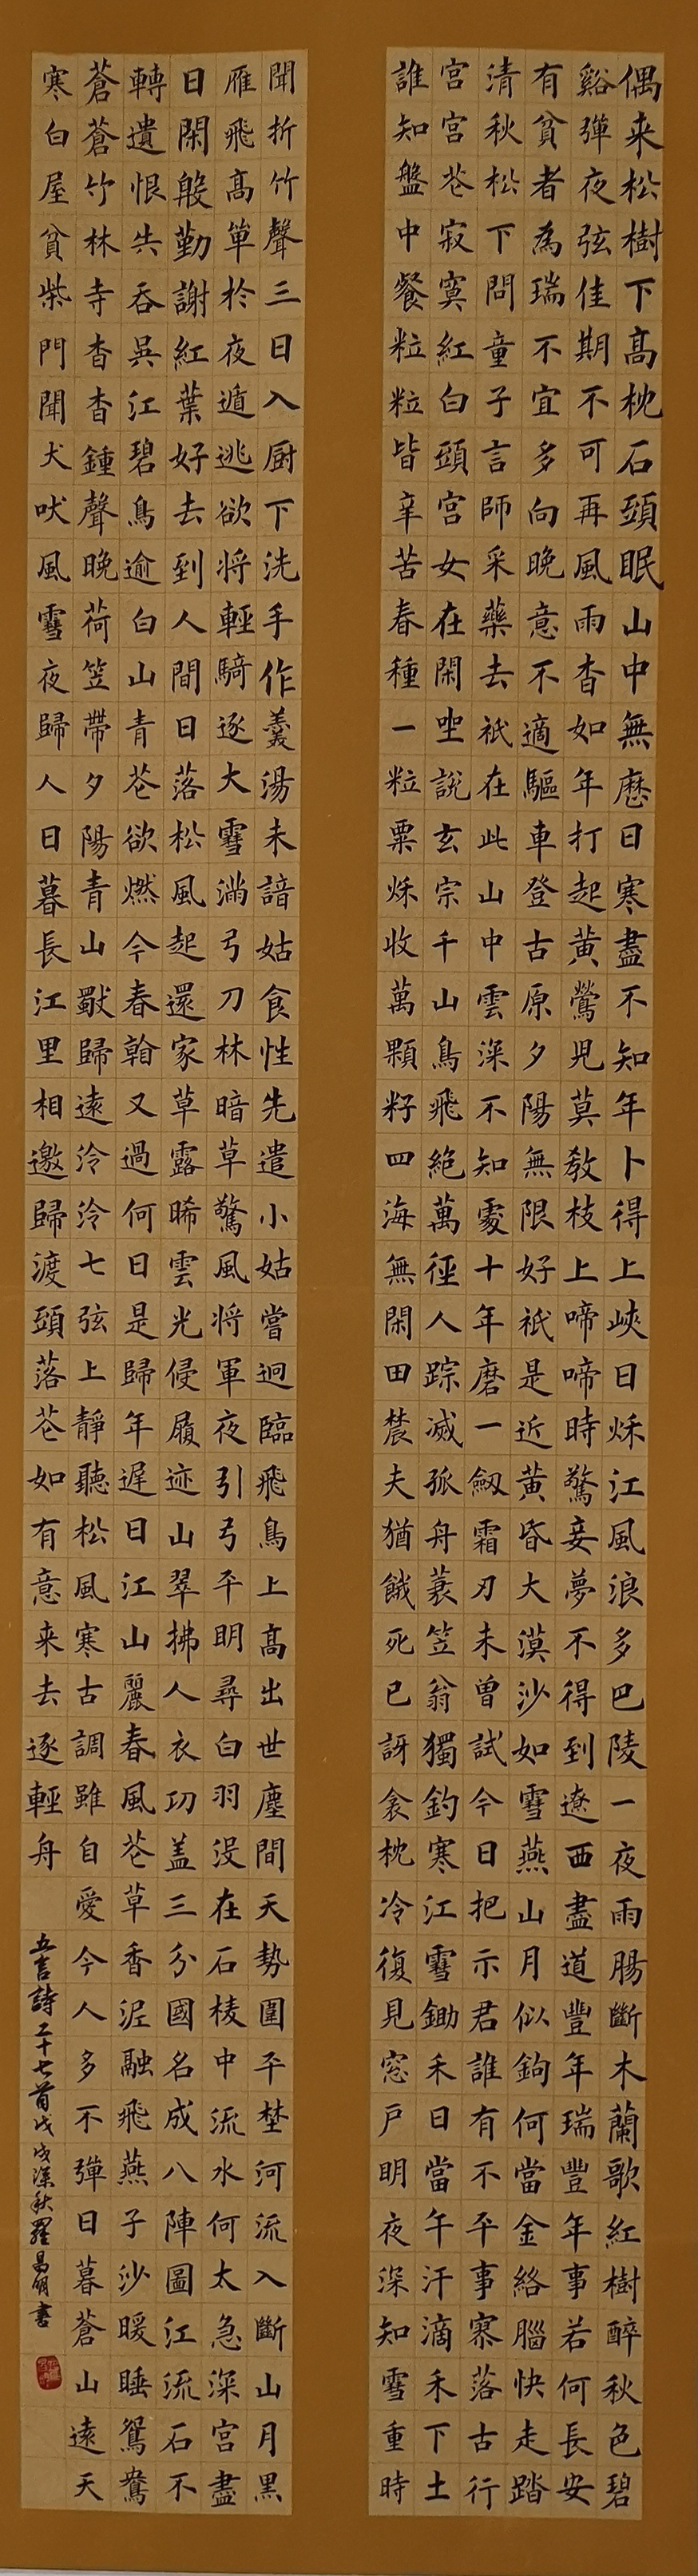 偶来松樹下高枕石頭眠山中無歷日寒盡不知年卜得上峽日秌江風浪多巴陵一夜雨腸斷木蘭歌紅樹醉秋色碧
谿彈夜弦佳期不可再風雨杳如年打起黃鶯児莫教枝上啼啼時驚妾夢不得到遼西盡道豐年瑞豐年事若何長安
有貧者為瑞不宜多向晚意不適驅車登古原夕陽無限好祇是近黃昏大漠沙如雪燕山月似鉤何當金絡腦快走踏
清秋松下問童子言師采藥去祇在此山中雲深不知處十年磨一劔霜刃未曾試今日把示君誰有不平事寮落古行
宮宮花寂寞紅白頭宮女在閑坐說玄宗千山鳥飛絕萬徑人踪滅孤舟蓑笠翁獨釣寒江雪鋤禾日當午汗滴禾下土
誰知盤中餐粒粒皆辛苦春種一粒粟秌收萬顆籽四海無閑田農夫猶餓死已訝衾枕冷復見窓戶明夜深知雪重時
聞折竹聲三日入厨下洗手作羹湯未諳姑食性先遣小姑嘗迥臨飛鳥上高出世塵間天勢圍平埜河流入斷山月黑
雁飛高單於夜遁逃欲將輕騎逐大雪滿弓刀林暗草驚風將軍夜引弓平明尋白羽沒在石棱中流水何太急深宮盡
日閑殷勤謝紅葉好去到人間日落松風起還家草露晞雲光侵履迹山翠拂人衣功蓋三分國名成八陣圖江流石不
轉遺恨失吞吳江碧鳥逾白山青花欲燃今春看又過何日是歸年遲日江山麗春風花草香泥融飛燕子沙暖睡鴛鴦
蒼蒼竹林寺杳杳鍾聲晚荷笠帶夕陽青山獨歸遠泠泠七弦上靜聽松風寒古調雖自愛今人多不彈日暮蒼山遠天
寒白屋貧柴門聞犬吠風雪夜歸人日暮長江里相邀歸渡頭落花如有意来去逐輕舟
五言詩二十七首戊戌深秋羅昌明書